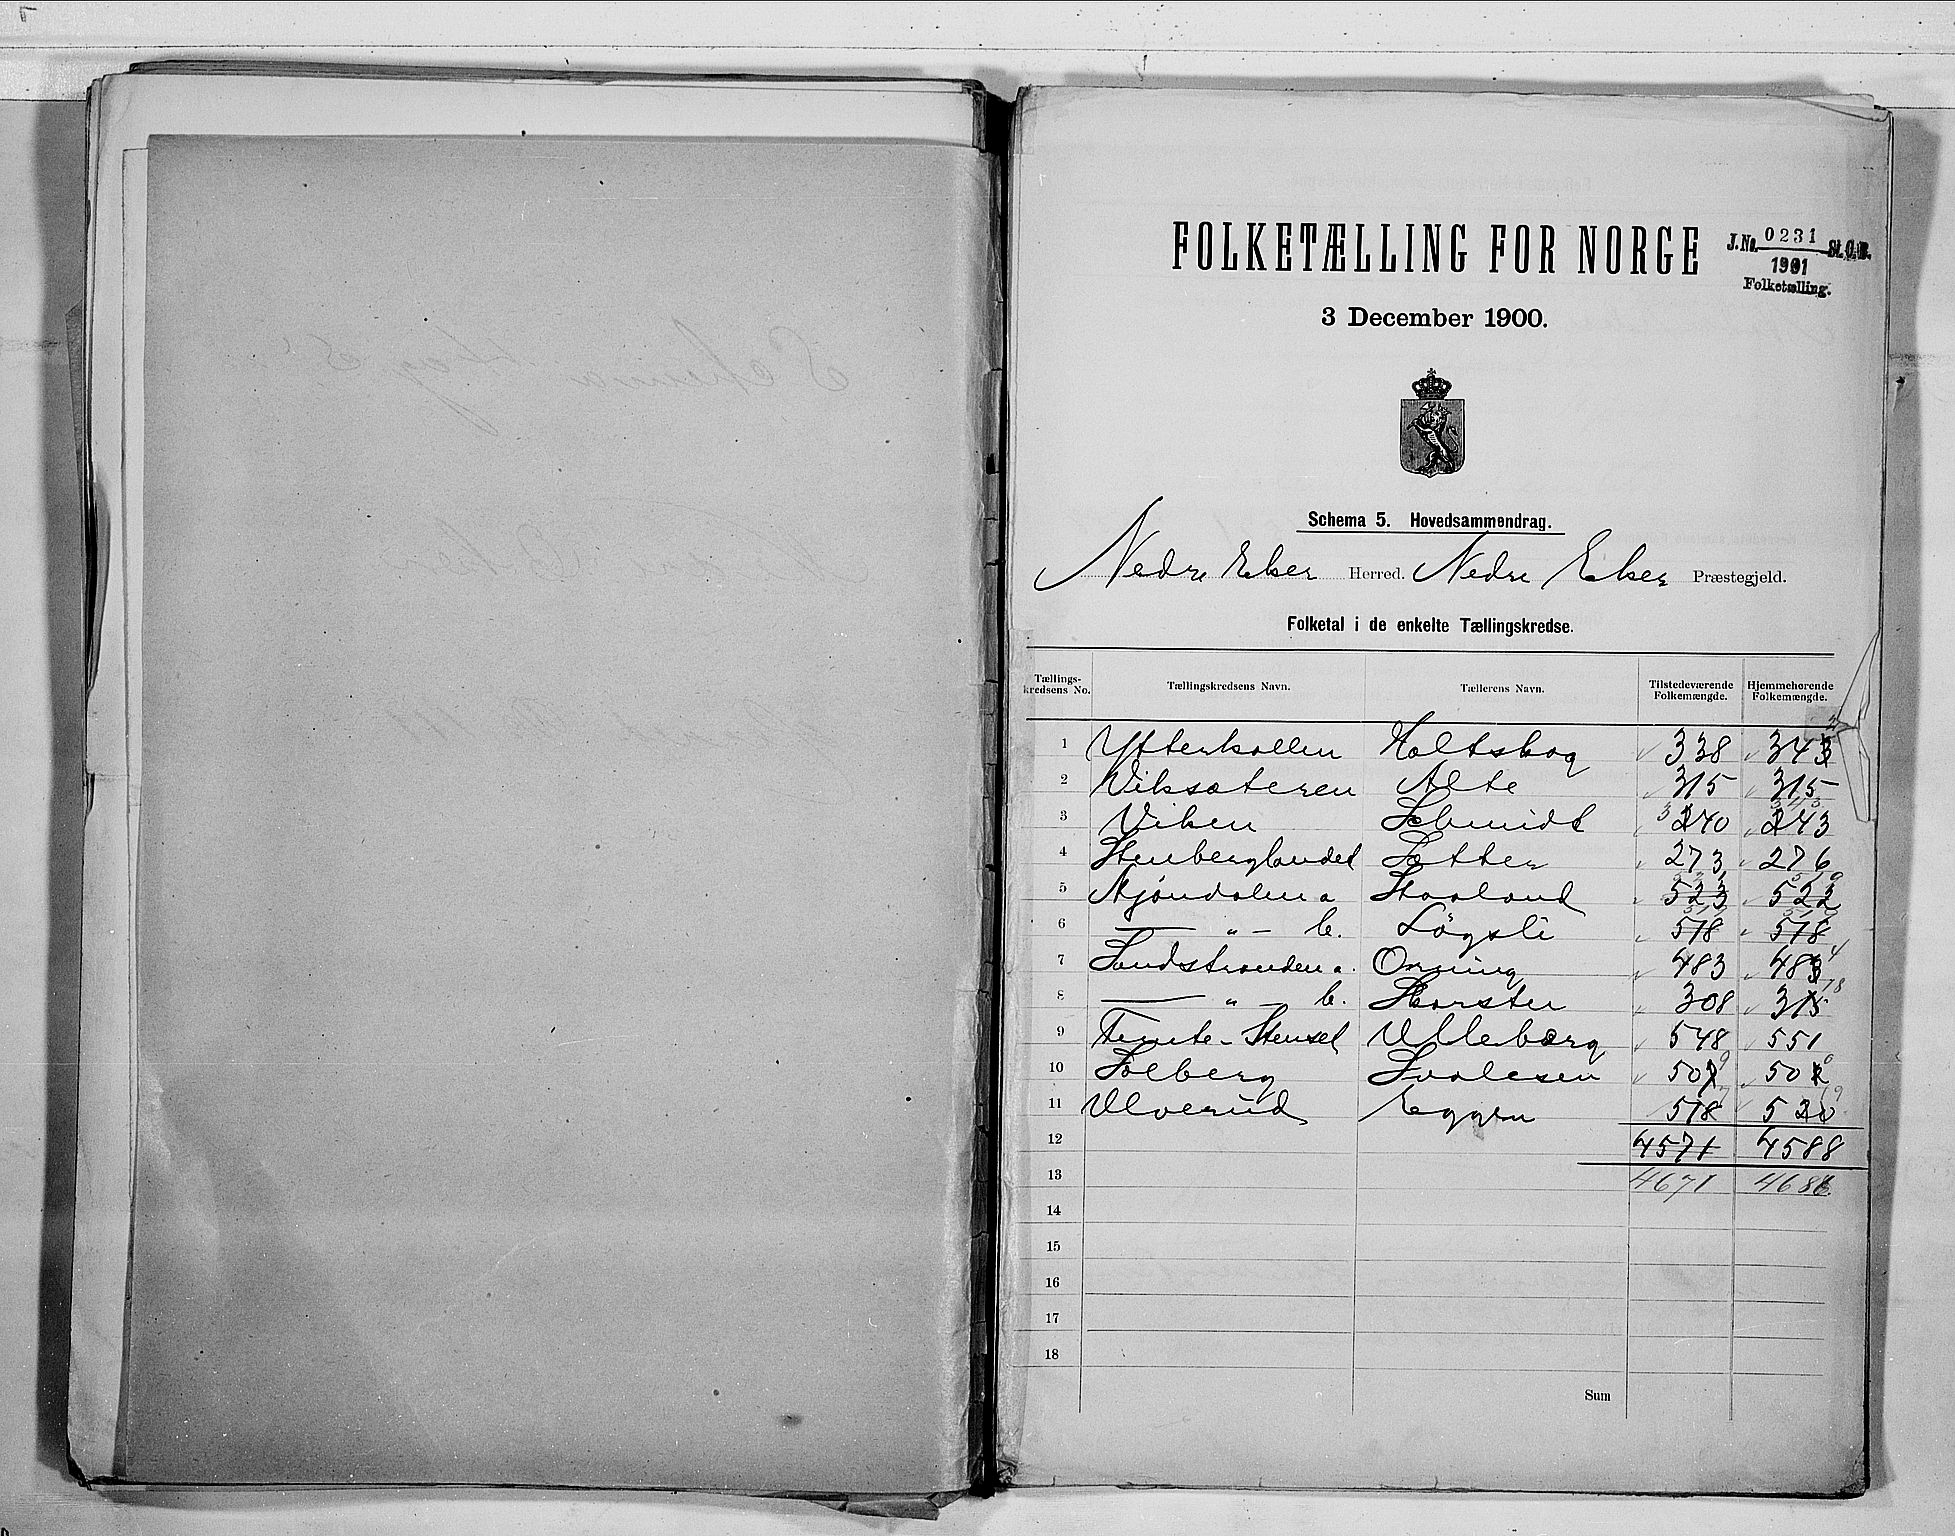 FOLKETÆLLING FOR NORGE
J.No. 0231 St.C.B.
1901
Folketælling.
3 December 1900.
Schema 5. Hovedsammendrag.
Nedre Eker Herred. Nedre Eker Præstegjeld.
Folketal i de enkelte Tællingskredse.
Tællings-kredsens No. Tællingskredsens Navn. Tællerens Navn. Tilstedeværende Folkemængde. Hjemmehørende Folkemængde.
1 Ytterkollen Holtskog 338 343
2 Viksæteren Alte 315 315
3 Viken Schmidt 240 243
4 Stenberglandet Sætter 273 276
5 Mjøndalen a Staaland 523 522
6 — " — b. Løgsli 518 518
7 Sandstranden a. Orning 483 483
8 — " — b. Skorsten 308 315
9 Temte-Stensel Ulleberg 548 551
10 Solberg Svalesen 507 502
11 Ulverud Eggen 518 520
12 4571 4588
13 4671 4686.
14
15
16
17
18
Sum